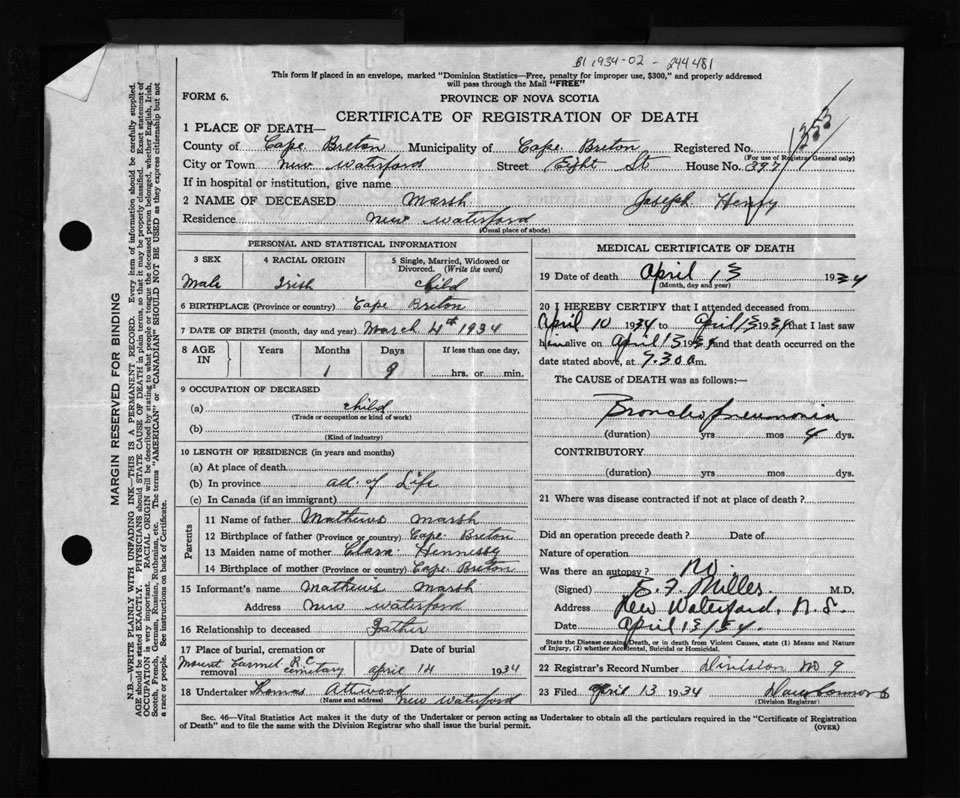 B1 1934-02-244481
This form if placed in an envelope, marked "Dominion Statistics—Free, penalty for improper use, $300," and properly addressed
will pass through the Mail "FREE"
FORM 6.
PROVINCE OF NOVA SCOTIA
CERTIFICATE OF REGISTRATION OF DEATH
1 PLACE OF DEATH—
County of Cape Breton Municipality of Cape Breton Registered No.
(For use of Registrar General only)
City or Town New Waterford Street Eight St House No. 397
If in hospital or institution, give name
2 NAME OF DECEASED Marsh Joseph Henry
Residence New Waterford
(Usual place of abode)
PERSONAL AND STATISTICAL INFORMATION
3 SEX 4 RACIAL ORIGIN 5 Single, Married, Widowed or
Divorced. (Write the word)
Male Irish child
6 BIRTHPLACE (Province or country) Cape Briton
7 DATE OF BIRTH (month, day and year) March 4th 1934
8 AGE IN Years Months Days If less than one day,
1 9 hrs. or min.
9 OCCUPATION OF DECEASED
(a) child
(Trade or occupation or kind of work)
(b)
(Kind of industry)
10 LENGTH OF RESIDENCE (in years and months)
(a) At place of death
(b) In province all of Life
(c) In Canada (if an immigrant)
Parents
11 Name of father Mathews Marsh
12 Birthplace of father (Province or country) Cape Breton
13 Maiden name of mother Clara Hennessy
14 Birthplace of mother (Province or country) Cape Breton
15 Informant's name Mathews Marsh
Address New Waterford
16 Relationship to deceased Father
17 Place of burial, cremation or Date of burial
removal Mount Carmel R.C. cemitary april 14 1934
18 Undertaker Thomas Attwood
(Name and address) New Waterford
MEDICAL CERTIFICATE OF DEATH
19 Date of death April 13 1934
(Month, day and year)
20 I HEREBY CERTIFY that I attended deceased from
April 10 1934 to April 13 1934 that I last saw
him alive on April 13 1934 and that death occurred on the
date stated above, at 7.30 a m.
The CAUSE OF DEATH was as follows:—
Broncho pneumonia
(duration) yrs mos 4 dys.
CONTRIBUTORY
(duration) yrs mos dys.
21 Where was disease contracted if not at place of death?
Did an operation precede death? Date of
Nature of operation
Was there an autopsy? No.
(Signed) B. F. Miller M.D.
Address New Waterford, N.S.
Date April 13/34.
State the Disease causing Death, or in death from Violent Causes, state (1) Means and Nature
of Injury, (2) whether Accidental, Suicidal or Homicidal.
22 Registrar's Record Number Division No 9
23 Filed April 13 1934
(Division Registrar)
Sec. 46—Vital Statistics Act makes it the duty of the Undertaker or person acting as Undertaker to obtain all the particulars required in the "Certificate of Registration
of Death" and to file the same with the Division Registrar who shall issue the burial permit.
(OVER)
MARGIN RESERVED FOR BINDING
N.B.—WRITE PLAINLY WITH UNFADING INK—THIS IS A PERMANENT RECORD. Every item of information should be carefully supplied.
AGE should be stated EXACTLY. PHYSICIANS should STATE CAUSE OF DEATH in plain terms, so that it may be properly classified. Exact statement of
OCCUPATION is very important. RACIAL ORIGIN will be described by stating to what people or tongue the deceased person belonged, whether English, Irish,
Scotch, French, German, Russian, Ruthenian, etc. The terms "AMERICAN" or "CANADIAN" SHOULD NOT BE USED as they express citizenship but not
a race or people. See instructions on back of Certificate.